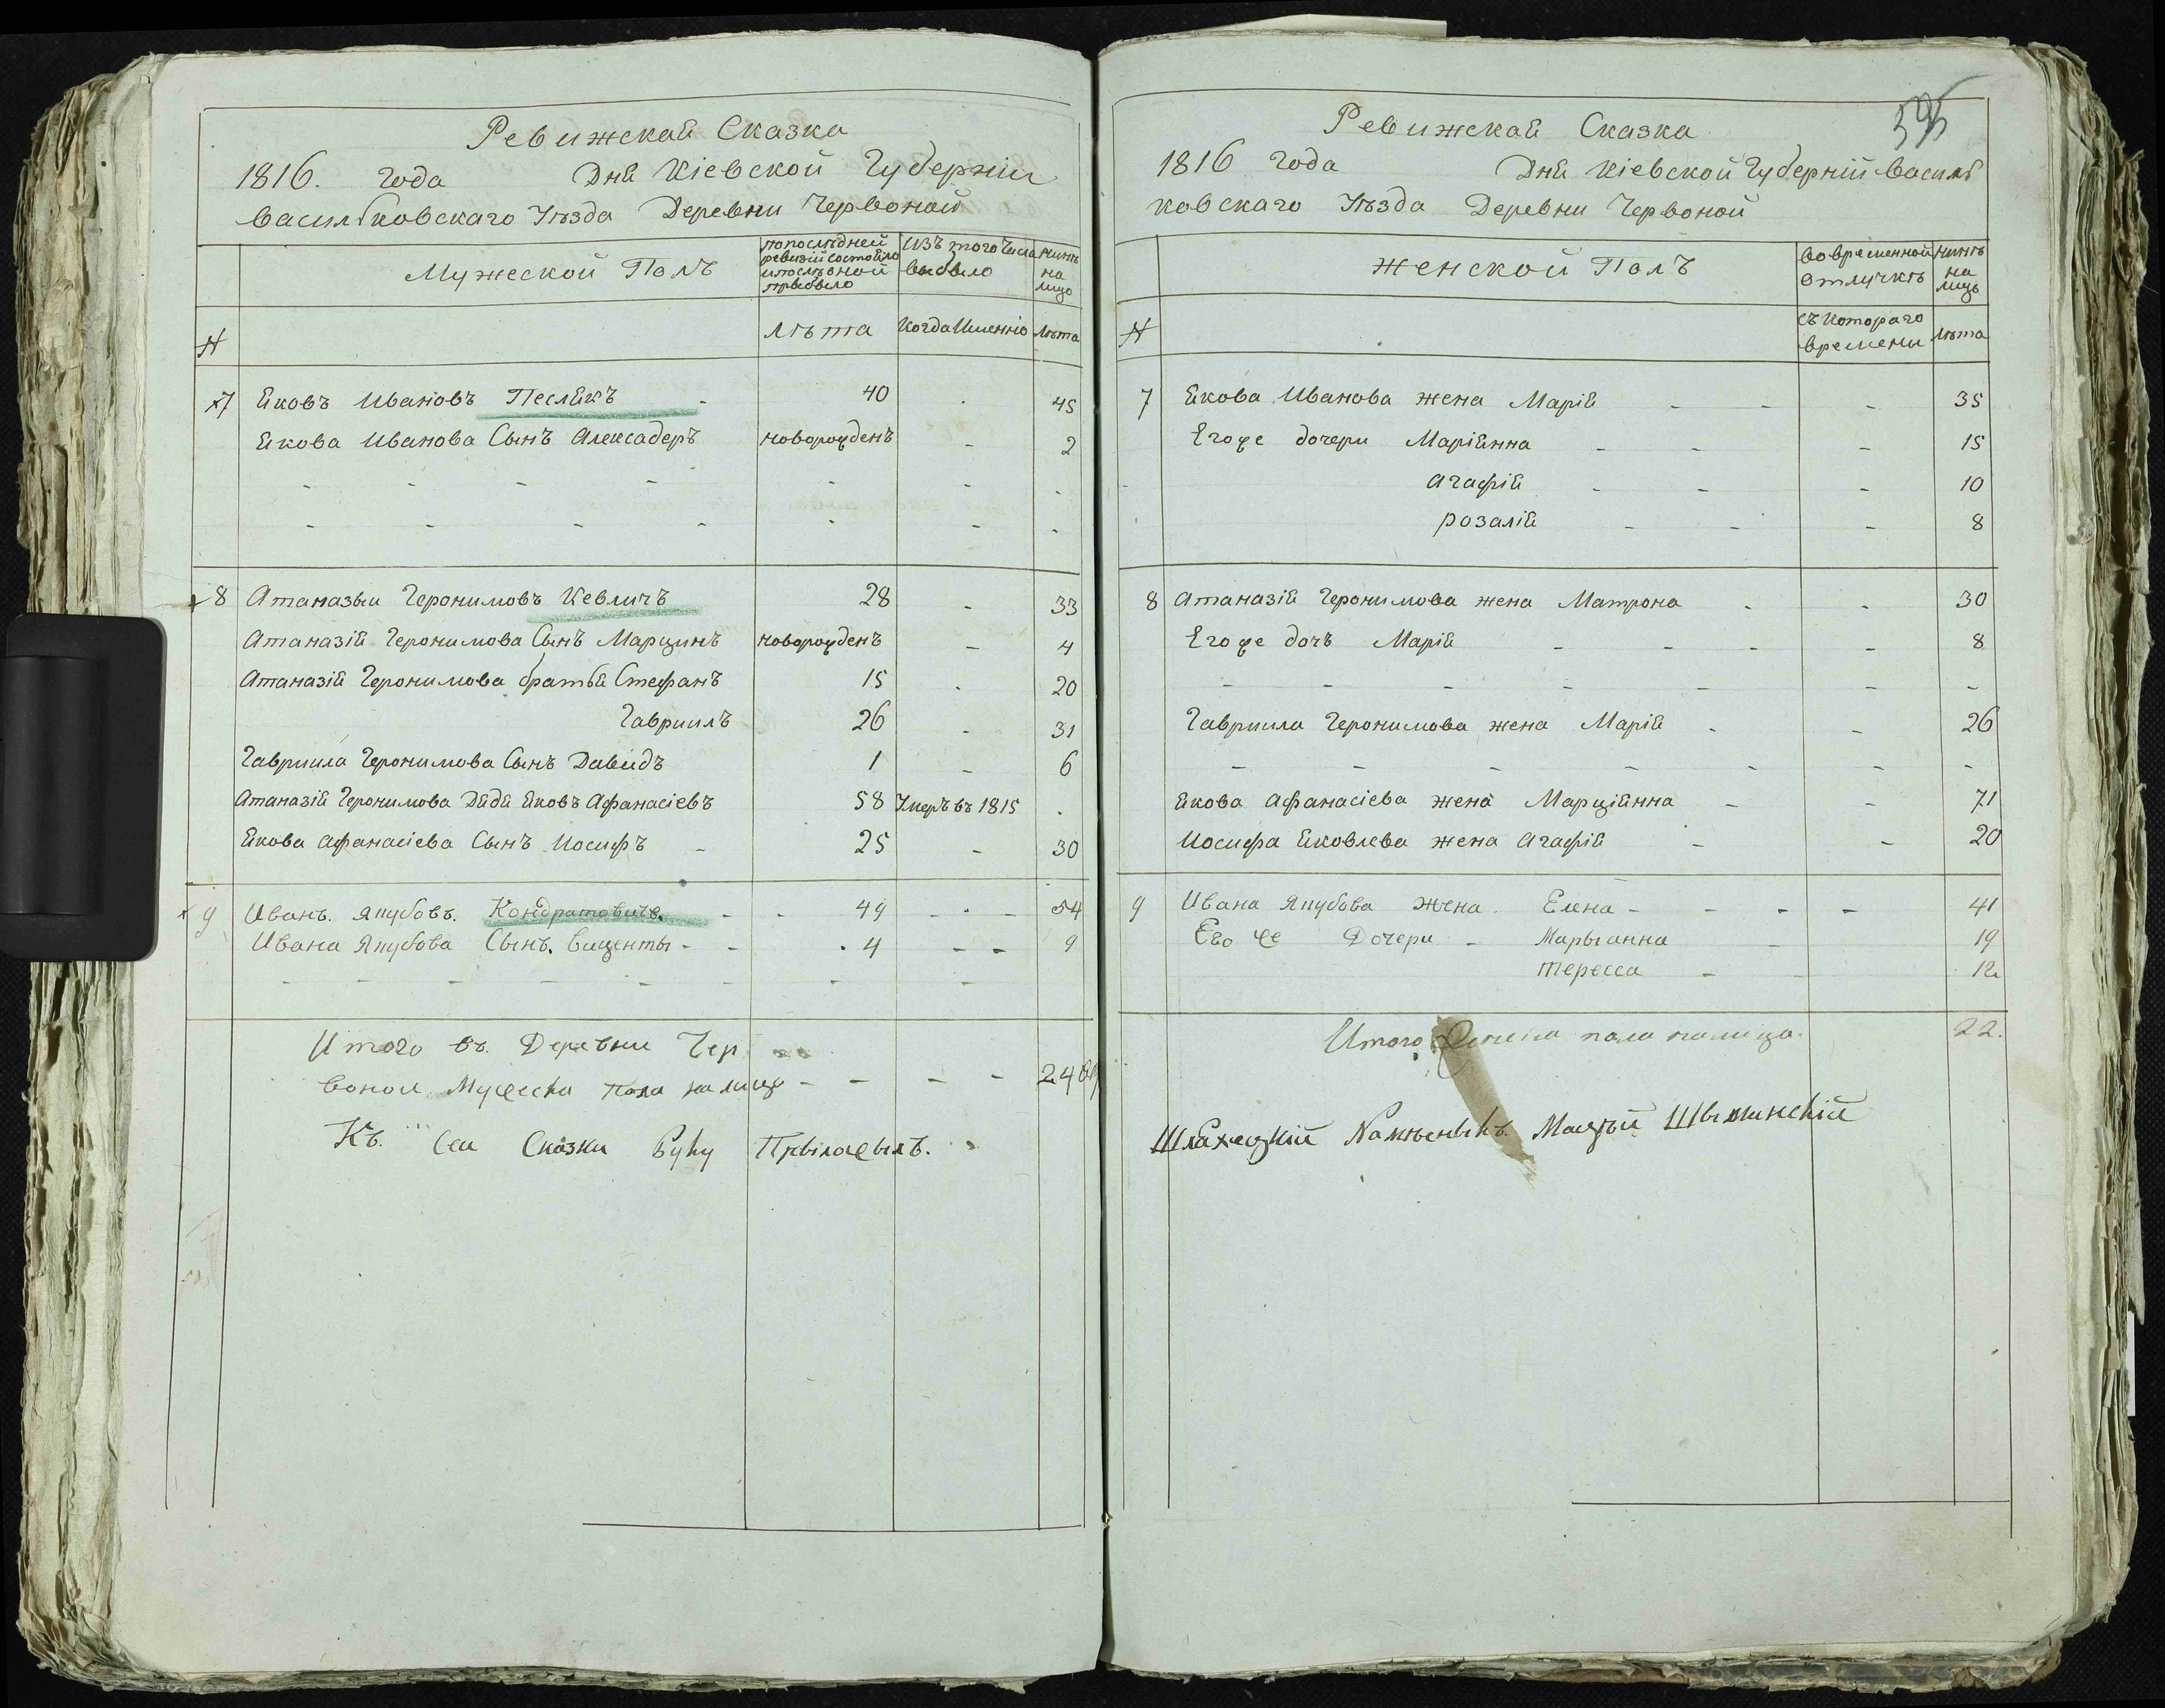 Ревижская Сказка
1816. года Дня Кіевской Губерніи
Васильковскаго Уѣзда Деревни Червоной
Мужеской Полъ
по послѣдней ревизіи состояло и послѣ оной прибыло
Изъ того числа выбыло
Нынѣ на лицо
№
Лѣта
Когда Именно
Лѣта
7 Яковъ Ивановъ Песлякъ - 40 - 45
Якова Иванова Сынъ Алексадеръ новорожденъ - 2
8 Атаназыи Геронимовъ Кевличъ 28 - 33
Атаназія Геронимова Сынъ Марцинъ новорожденъ - 4
Атаназія Геронимова братья Стефанъ 15 - 20
Гавриилъ 26 - 31
Гавриила Геронимова Сынъ Давидъ 1 - 6
Атаназія Геронимова Дядя Яковъ Афанасіевъ 58 Умеръ въ 1815
Якова Афанасіева Сынъ Иосифъ - 25 - 30
9 Иванъ. Якубовъ. Кондратовичъ. - - 49 - - - 54
Ивана Якубова Сынъ. Виценты - - 4 - - 9
Итого въ. Деревни Чер
воной Мужеска пола на лицо - - - - 24
Къ. Сей Сказки Руку Прылажылъ.
595
Ревижская Сказка
1816 года Дня Кіевской Губерніи Василь
ковскаго Уѣзда Деревни Червоной
Женской Полъ
во временной отлучкѣ
Нынѣ на лицо
№
съ котораго времени
Лѣта
7 Якова Иванова жена Марія - - - 35
Егоже дочери Маріянна - - - 15
Агафія - - - 10
Розалія - - - 8
8 Атаназія Геронимова жена Матрона - - 30
Егоже дочъ Марія - - - - 8
Гавриила Геронимова жена Марія - - 26
Якова Афанасіева жена Марціянна - - 71
Иосифа Яковлева жена Агафія - - 20
9 Ивана Якубова жена Елена - - - - 41
Его же Дочери - Марыанна - 19
Тересса - - 12
Итого женска пола налицо. 22.
Шляхецкій Намѣсныкъ.